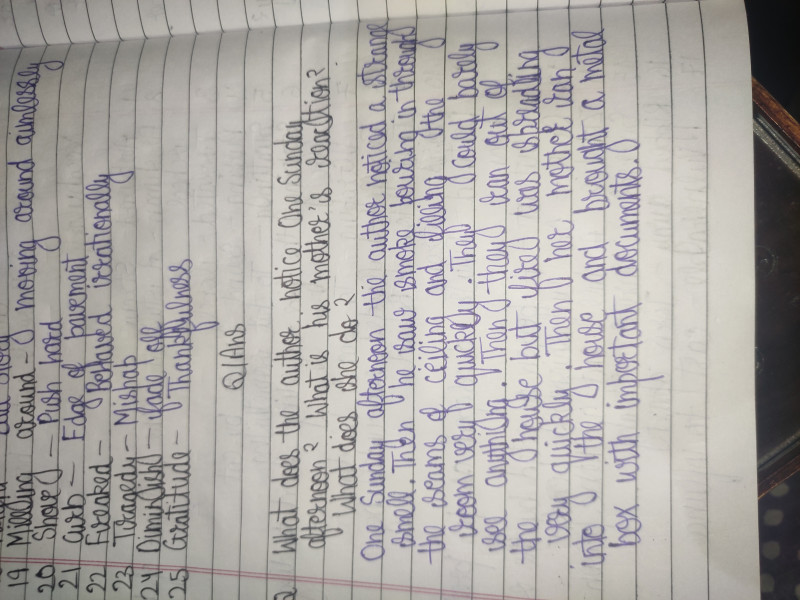 19 Milling around - moving around aimlessly
20 Shove - Push hard
21 Curb - Edge of pavement
22 Freaked - Behaved irrationally
23 Tragedy - Mishap
24 Diminished - fade off
25 Gratitude - Thankfulness
Q/Ans
Q What does the author notice One Sunday
afternoon? What is his mother's reaction?
What does she do?
One Sunday afternoon the author noticed a strange
smell. Then he saw smoke pouring in through
the seams of ceiling and filling the
room very quickly. They could barely
see anything. Then they ran out of
the house but fire was spreading
very quickly. Then her mother ran
into the house and brought a metal
box with important documents.